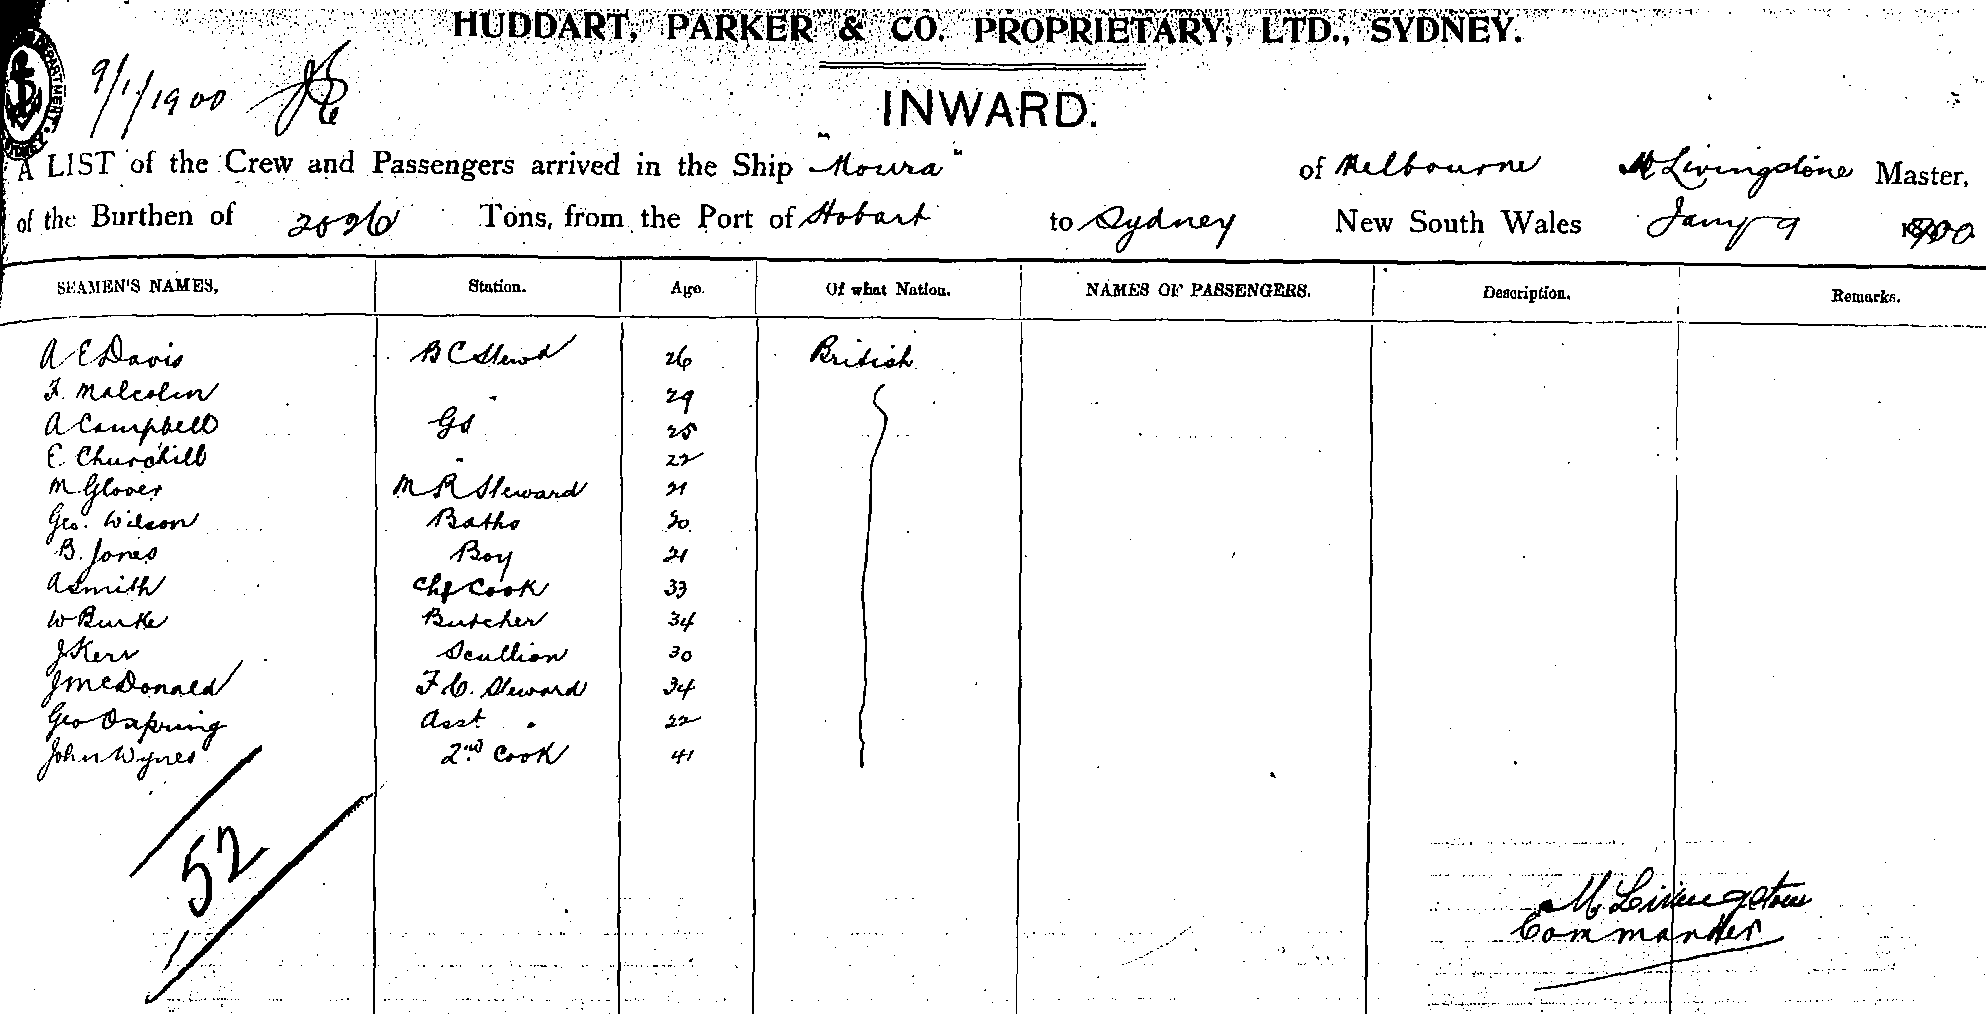 HUDDART, PARKER & CO. PROPRIETARY, LTD., SYDNEY.
9/1/1900
INWARD.
A LIST of the Crew and Passengers arrived in the Ship "Moura" of Melbourne M Livingstone Master,
of the Burthen of 2026 Tons, from the Port of Hobart to Sydney New South Wales Jany 9 1900
SEAMEN'S NAMES, Station. Age. Of what Nation. NAMES OF PASSENGERS. Description. Remarks.
A E Davis B C Stewd 26 British
F. Malcolm " 29
A Campbell GS 25
E. Churchill " 22
M Glover M R Steward 21
Geo. Wilson Baths 20
B. Jones Boy 21
A Smith Chf Cook 33
W Burke Butcher 34
J Kerr Scullion 30
J McDonald F. C. Steward 34
Geo Ospring Asst " 22
John Wynes 2nd Cook 41
52
M Livingstone
Commander